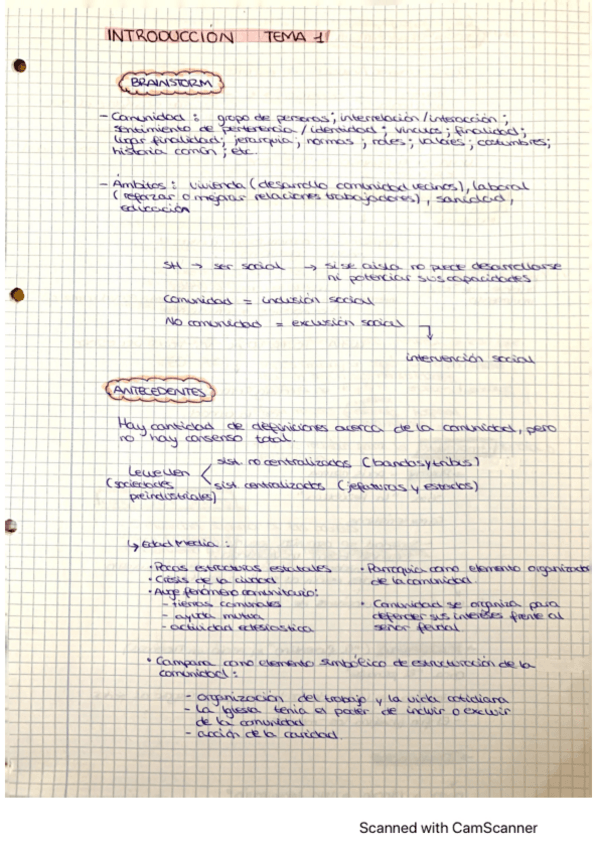 INTRODUCCIÓN TEMA 1
BRAINSTORM
- Comunidad : grupo de personas ; interrelación / interacción ;
sentimiento de pertenencia / identidad ; vínculos ; finalidad ;
lugar finalidad ; jerarquía ; normas ; roles ; valores ; costumbres ;
historia común ; etc.
- Ámbitos : vivienda ( desarrollo comunidad vecinos ) , laboral
( reforzar o mejorar relaciones trabajadores ) , sanidad ,
educación
SH → ser social → si se aísla no puede desarrollarse
ni potenciar sus capacidades
Comunidad = inclusión social
No comunidad = exclusión social
intervención social
ANTECEDENTES
Hay cantidad de definiciones acerca de la comunidad, pero
no hay consenso total.
Lewellen
(sociedades
preindustriales)
sist. no centralizados (bandas y tribus)
sist centralizados (jefaturas y estados)
↳ Edad Media :
· Pocas estructuras estatales
· Crisis de la ciudad
· Auge fenómeno comunitario:
- tierras comunales
- ayuda mutua
- actividad eclesiástica
· Parroquia como elemento organizador
de la comunidad
· Comunidad se organiza para
defender sus intereses frente al
señor feudal
· Campana como elemento simbólico de estructuración de la
comunidad :
- organización del trabajo y la vida cotidiana
- la Iglesia tenía el poder de incluir o excluir
de la comunidad
- acción de la caridad
Scanned with CamScanner